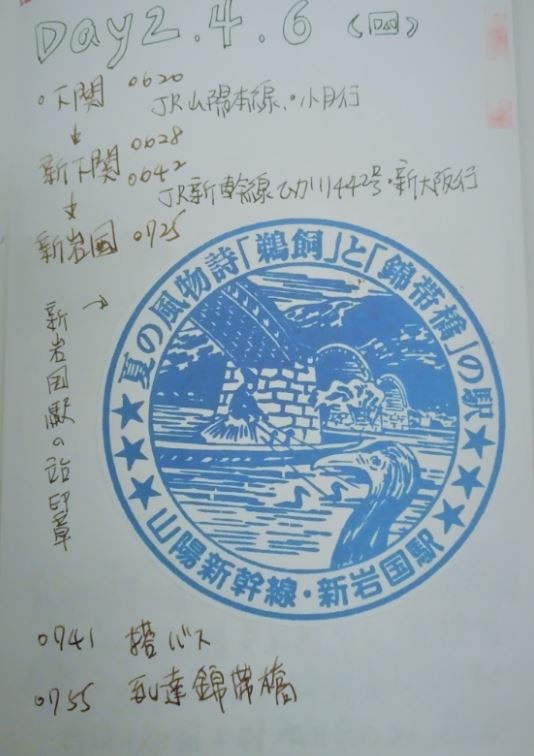 Day2.4.6 (四)
下関 0620
JR山陽本線・小月行
新下関 0628
0642
JR新幹線ひかり442号・新大阪行
新岩国 0725
新岩国駅の站印章
夏の風物詩「鵜飼」と「錦帯橋」の駅
山陽新幹線・新岩国駅
0741 搭バス
0755 到達錦帯橋